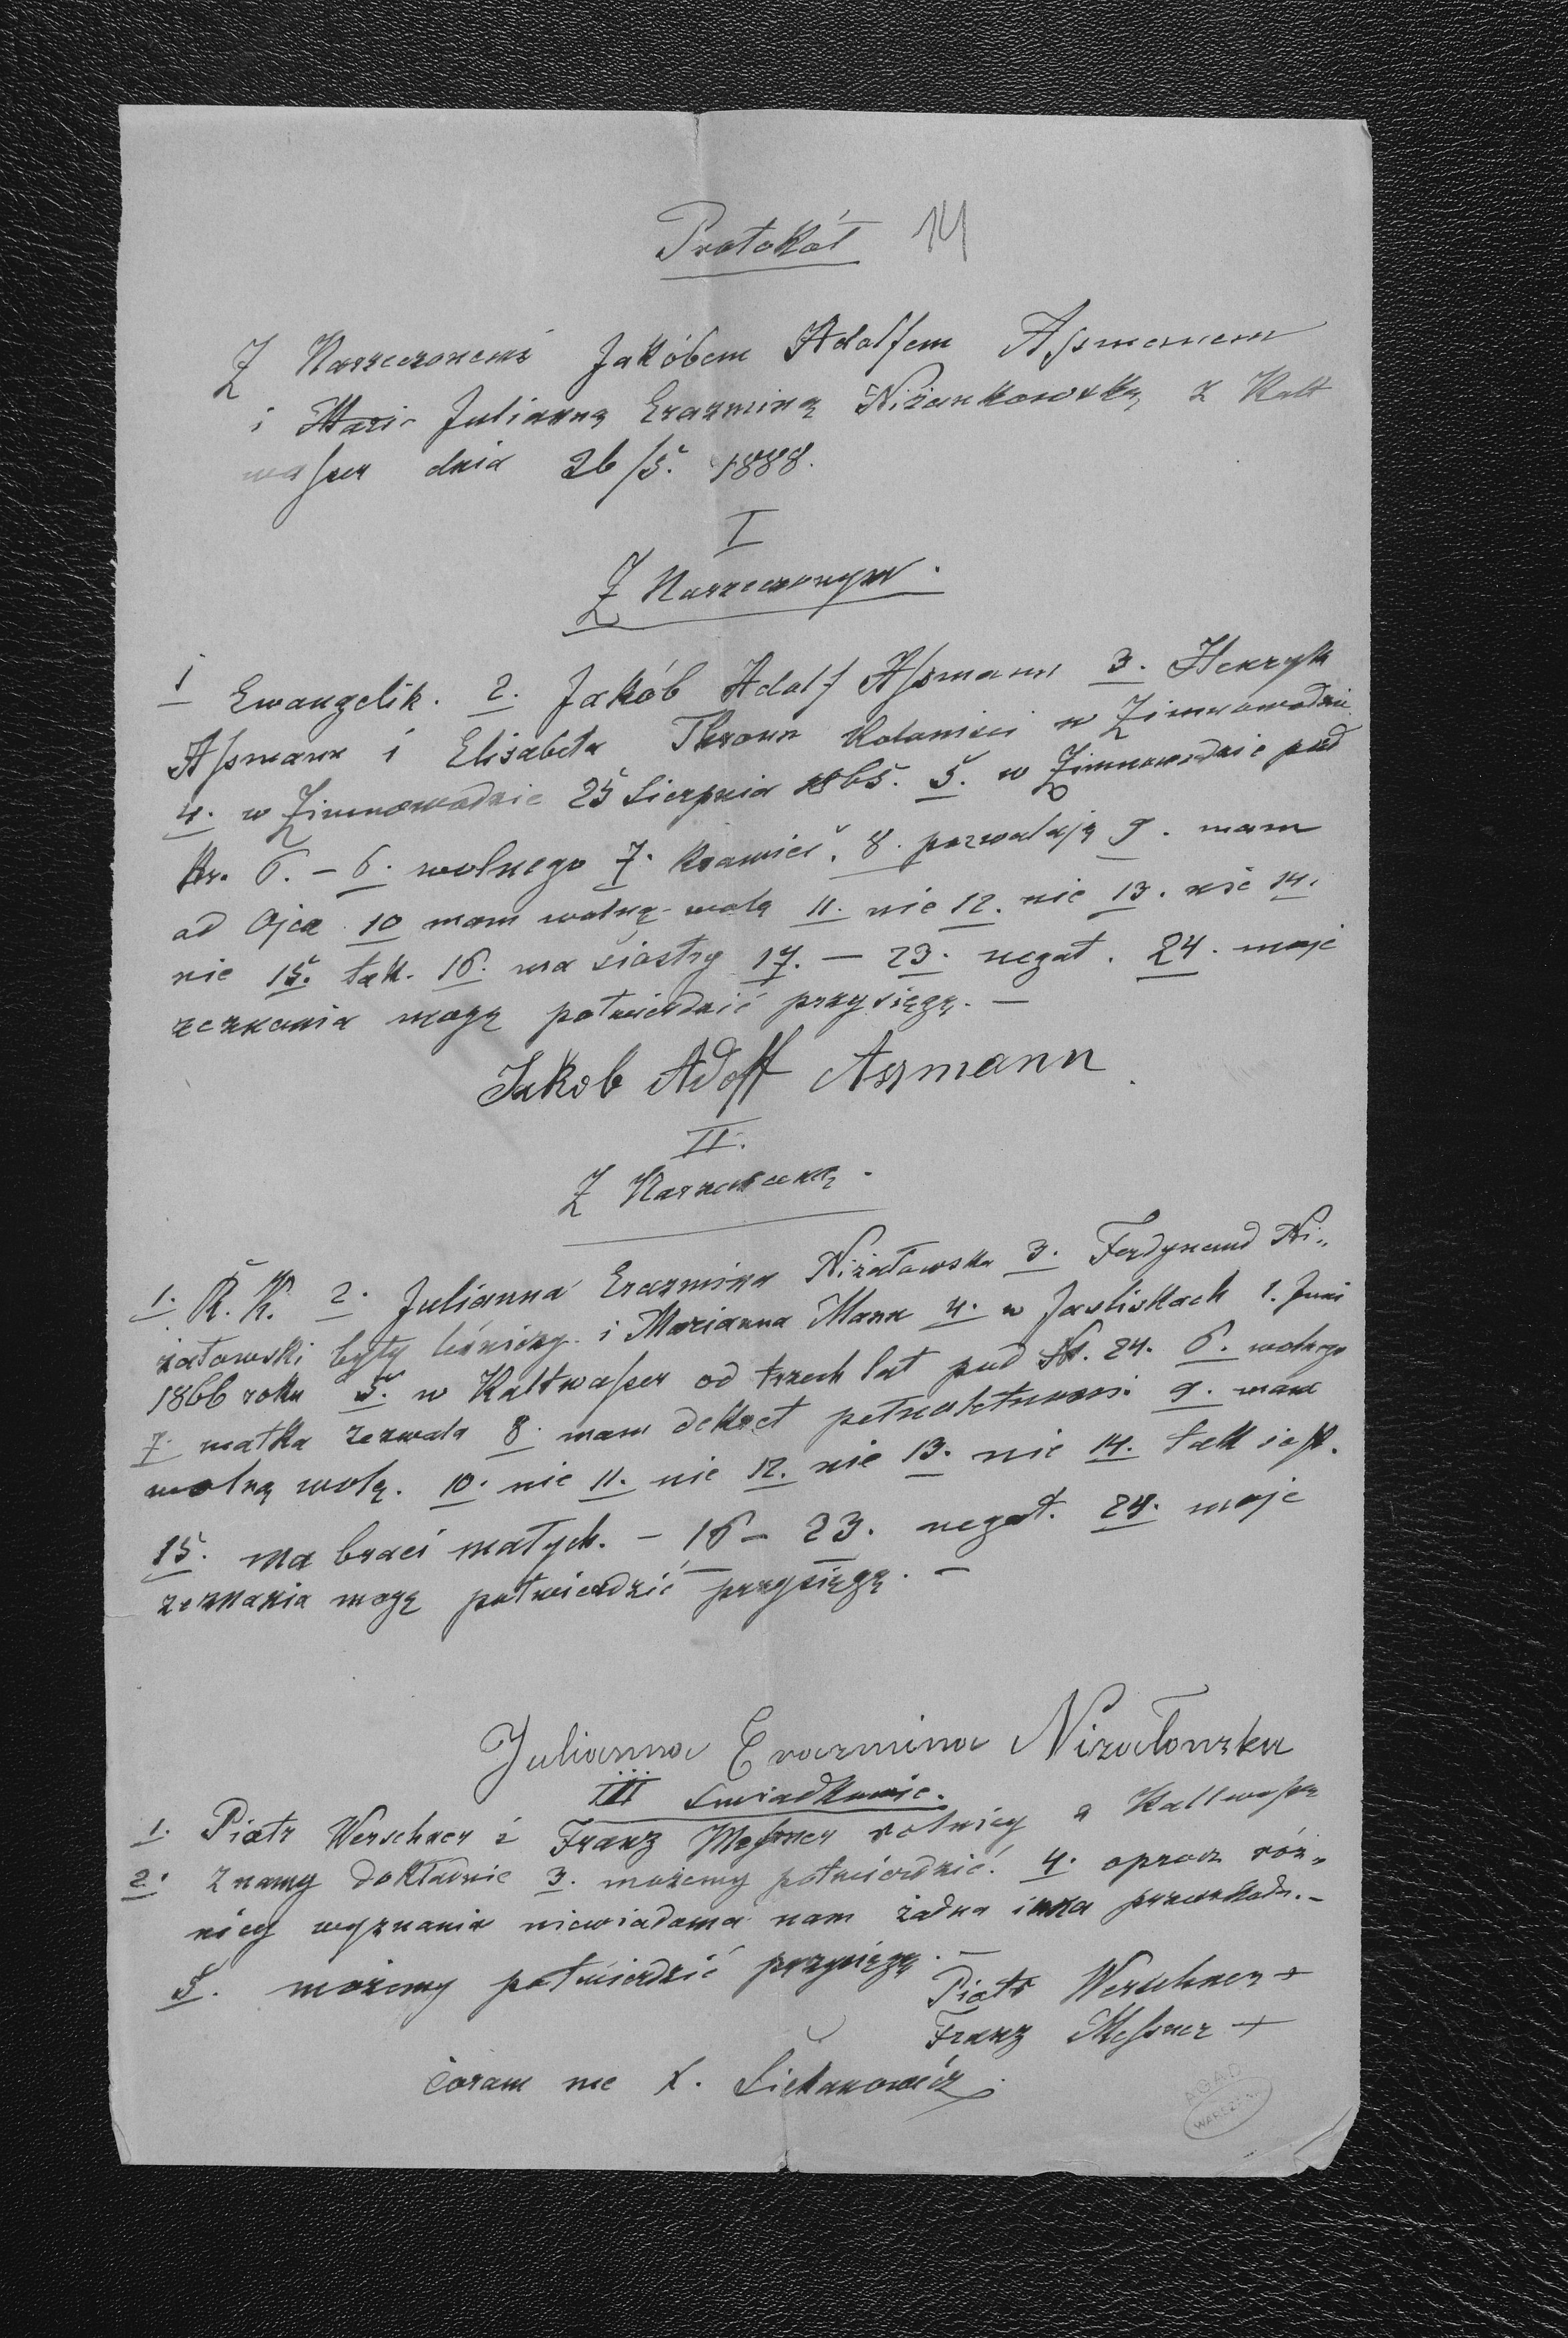 Protokół 14
Z Narzeczonemi Jakóbem Adolfem Aſsmanem
i Mari Julianną Erazminą Niżankowską z Kalt
waſser dnia 26/5. 1888.
I
Z Narzeczonym.
1 Ewangelik. 2. Jakób Adolf Aſsmann 3. Henryk
Aſsmann i Elisabeta Thronn Koloniści w Zimnowodzie
4. w Zimnowodzie 25 Sierpnia 1865. 5. w Zimnowodzie pod
Nr. 6. – 6. wolnego 7. krawiec. 8. pozwalają 9. mam
od Ojca 10 mam wolną wolę 11. nie 12. nie 13. nie 14.
nie 15. tak. 16. ma siostry 17. – 23. negat. 24. moje
zeznania mogę potwierdzić przysięgą. –
Jakob Adolf Assmann
II.
Z Narzeczoną.
1. R. K. 2. Julianna Erazmina Niżałowska 3. Ferdynand Ni„
żałowski były leśniczy i Marianna Mann 4. w Jasliskach 1. Juni
1866 roku 5. w Kaltwaſser od trzech lat pod Nr. 24. 6. wolnego
7. matka zezwala 8. mam dekret pełnoletności 9. mam
wolną wolę. 10. nie 11. nie 12. nie 13. nie 14. tak jest.
15. ma braci małych. – 16 – 23. negat. 24. moje
zeznania mogę potwierdzić przysięgą. –
Julianna Erazmina Nizałowska
III Swiadkowie.
1. Piotr Werschner i Franz Meſsner rolnicy z Kaltwaſser
2. Znamy dokładnie 3. możemy potwierdzić. 4. oprocz róż„
nicy wyznania niewiadoma nam żadna inna przeszkoda. –
5. możemy potwierdzić przysięgą. –
Piotr Werschner +
Franz Meſsner +
Coram me X.
AGAD
WARSZAWA